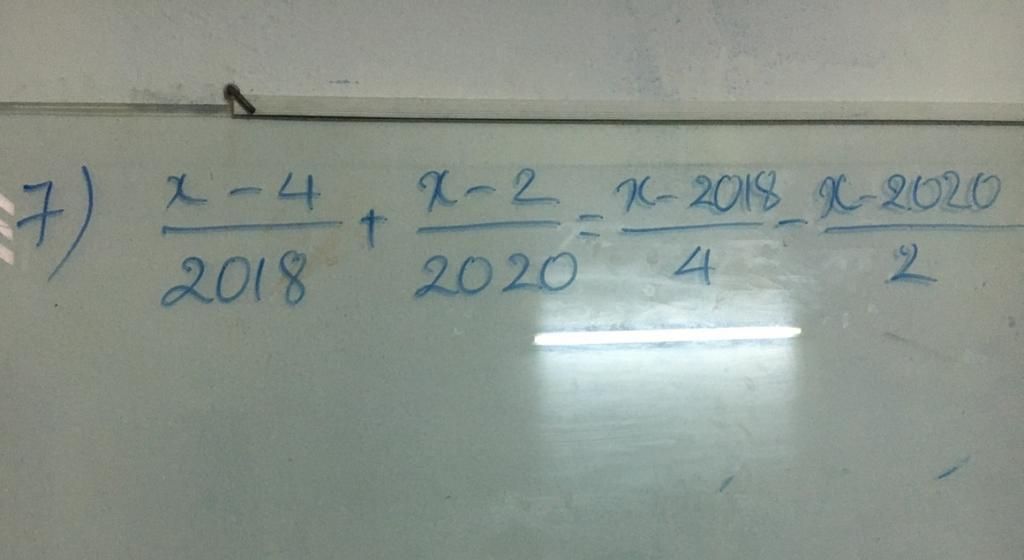 7) x - 4 / 2018 + x - 2 / 2020 = x - 2018 / 4 - x - 2020 / 2